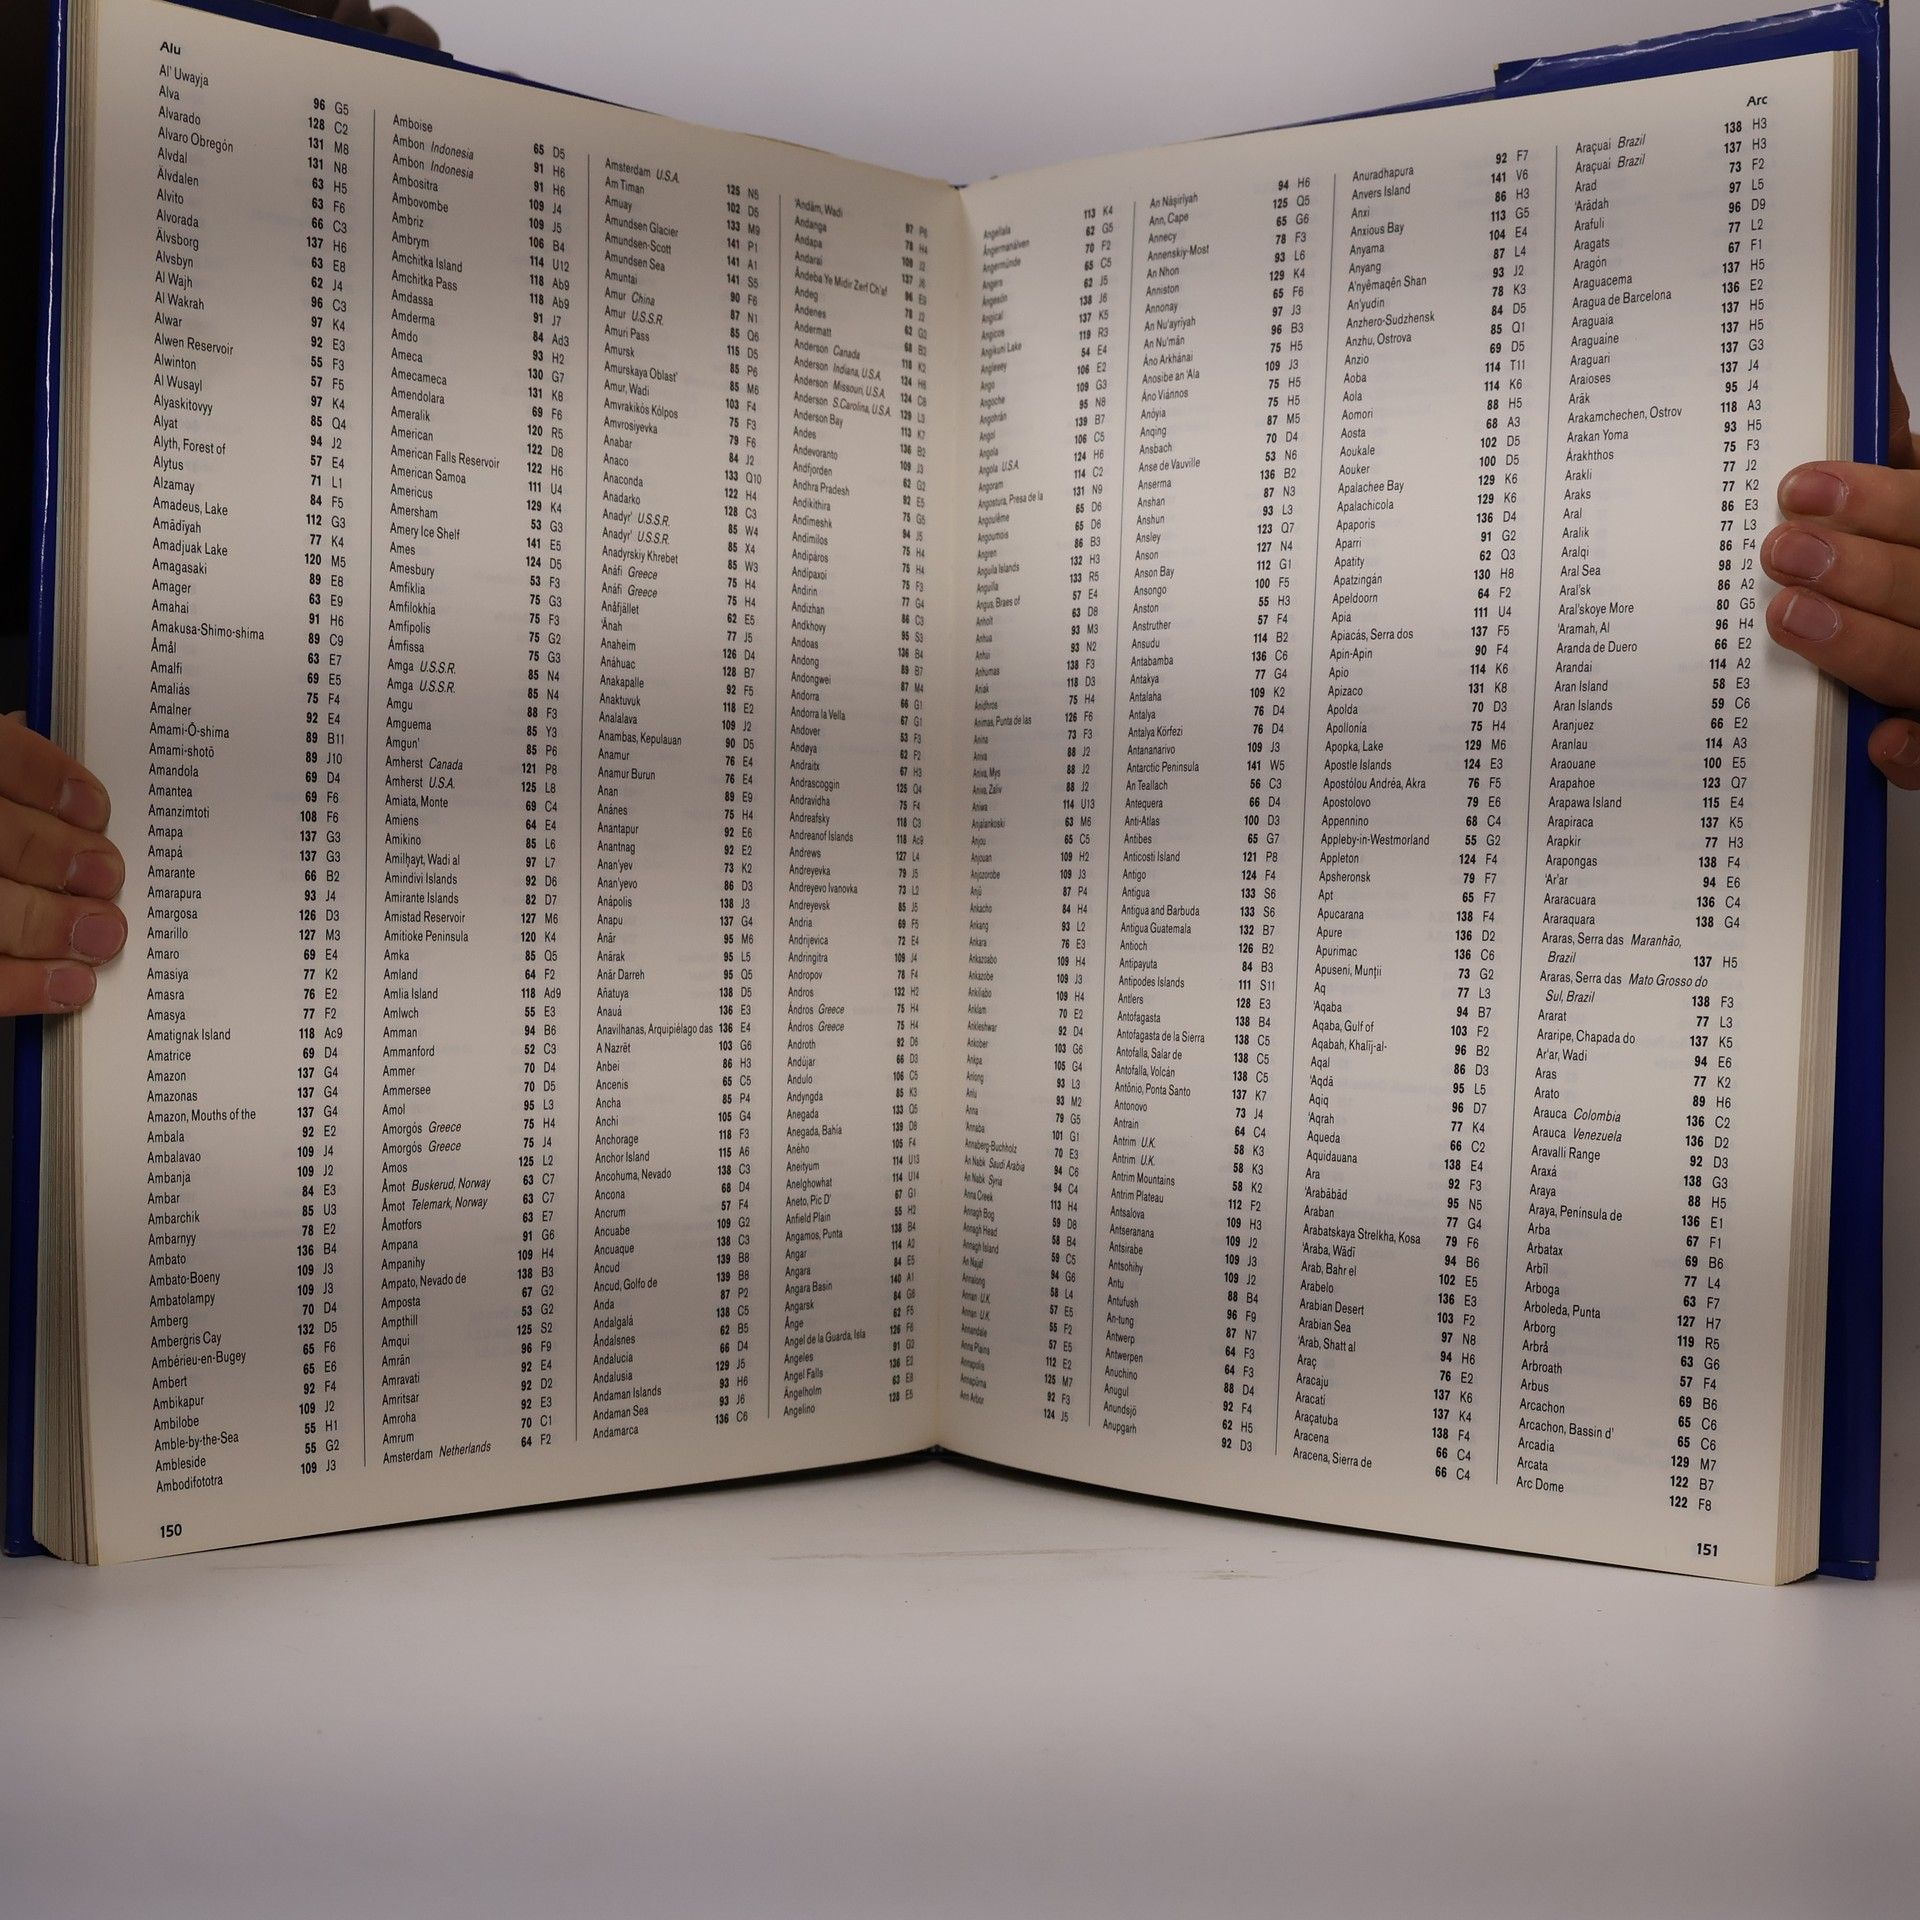 Alu
Al' Uwayja 96 G5
Alva 128 C2
Alvarado 131 M8
Alvaro Obregón 131 N8
Alvdal 63 H5
Älvdalen 63 F6
Alvito 66 C3
Alvorada 137 H6
Älvsborg 63 E8
Älvsbyn 62 J4
Al Wajh 96 C3
Al Wakrah 97 K4
Alwar 92 E3
Alwen Reservoir 55 F3
Alwinton 57 F5
Al Wusayl 97 K4
Alyaskitovyy 85 Q4
Alyat 94 J2
Alyth, Forest of 57 E4
Alytus 71 L1
Alzamay 84 F5
Amadeus, Lake 112 G3
Amādīyah 77 K4
Amadjuak Lake 120 M5
Amagasaki 89 E8
Amager 63 E9
Amahai 91 H6
Amakusa-Shimo-shima 89 C9
Åmål 63 E7
Amalfi 69 E5
Amaliás 75 F4
Amalner 92 E4
Amami-Ō-shima 89 B11
Amami-shotō 89 J10
Amandola 69 D4
Amantea 69 F6
Amanzimtoti 108 F6
Amapa 137 G3
Amapá 137 G3
Amarante 66 B2
Amarapura 93 J4
Amargosa 126 D3
Amarillo 127 M3
Amaro 69 E4
Amasiya 77 K2
Amasra 76 E2
Amasya 77 F2
Amatignak Island 118 Ac9
Amatrice 69 D4
Amazon 137 G4
Amazonas 137 G4
Amazon, Mouths of the 137 G4
Ambala 92 E2
Ambalavao 109 J4
Ambanja 109 J2
Ambar 84 E3
Ambarchik 85 U3
Ambarnyy 78 E2
Ambato 136 B4
Ambato-Boeny 109 J3
Ambatolampy 109 J3
Amberg 70 D4
Ambergris Cay 132 D5
Ambérieu-en-Bugey 65 F6
Ambert 65 E6
Ambikapur 92 F4
Ambilobe 109 J2
Amble-by-the-Sea 55 H1
Ambleside 55 G2
Ambodifototra 109 J3
Amboise 65 D5
Ambon Indonesia 91 H6
Ambon Indonesia 91 H6
Ambositra 109 J4
Ambovombe 109 J5
Ambriz 106 B4
Ambrym 114 U12
Amchitka Island 118 Ab9
Amchitka Pass 118 Ab9
Amdassa 91 J7
Amderma 84 Ad3
Amdo 93 H2
Ameca 130 G7
Amecameca 131 K8
Amendolara 69 F6
Ameralik 120 R5
American 122 D8
American Falls Reservoir 122 H6
American Samoa 111 U4
Americus 129 K4
Amersham 53 G3
Amery Ice Shelf 141 E5
Ames 124 D5
Amesbury 53 F3
Amfiklia 75 G3
Amfilokhia 75 F3
Amfípolis 75 G2
Ámfissa 75 G3
Amga U.S.S.R. 85 N4
Amga U.S.S.R. 85 N4
Amgu 88 F3
Amguema 85 Y3
Amgun' 85 P6
Amherst Canada 121 P8
Amherst U.S.A. 125 L8
Amiata, Monte 69 C4
Amiens 64 E4
Amikino 85 L6
Amilḥayt, Wadi al 97 L7
Amindivi Islands 92 D6
Amirante Islands 82 D7
Amistad Reservoir 127 M6
Amitioke Peninsula 120 K4
Amka 85 Q5
Amland 64 F2
Amlia Island 118 Ad9
Amlwch 55 E3
Amman 94 B6
Ammanford 52 C3
Ammer 70 D4
Ammersee 70 D5
Amol 95 L3
Amorgós Greece 75 H4
Amorgós Greece 75 J4
Amos 125 L2
Åmot Buskerud, Norway 63 C7
Åmot Telemark, Norway 63 C7
Åmotfors 63 E7
Ampana 91 G6
Ampanihy 109 H4
Ampato, Nevado de 138 B3
Amposta 67 G2
Ampthill 53 G2
Amqui 125 S2
Amrān 96 F9
Amravati 92 E4
Amritsar 92 D2
Amroha 92 E3
Amrum 70 C1
Amsterdam Netherlands 64 F2
Amsterdam U.S.A. 125 N5
Am Timan 102 D5
Amuay 133 M9
Amundsen Glacier 141 P1
Amundsen-Scott 141 A1
Amundsen Sea 141 S5
Amuntai 90 F6
Amur China 87 N1
Amur U.S.S.R. 85 Q6
Amuri Pass 115 D5
Amursk 85 P6
Amurskaya Oblast' 85 M6
Amur, Wadi 103 F4
Amvrakikós Kólpos 75 F3
Amvrosiyevka 79 F6
Anabar 84 J2
Anaco 133 Q10
Anaconda 122 H4
Anadarko 128 C3
Anadyr' U.S.S.R. 85 W4
Anadyr' U.S.S.R. 85 X4
Anadyrskiy Khrebet 85 W3
Anáfi Greece 75 H4
Anáfi Greece 75 H4
Anåfjället 62 E5
'Ānah 77 J5
Anaheim 126 D4
Anáhuac 128 B7
Anakapalle 92 F5
Anaktuvuk 118 E2
Analalava 109 J2
Anambas, Kepulauan 90 D5
Anamur 76 E4
Anamur Burun 76 E4
Anan 89 E9
Anánes 75 H4
Anantapur 92 E6
Anantnag 92 E2
Anan'yev 73 K2
Anan'yevo 86 D3
Anápolis 138 J3
Anapu 137 G4
Anār 95 M6
Anārak 95 L5
Anār Darreh 95 Q5
Añatuya 138 D5
Anauá 136 E3
Anavilhanas, Arquipiélago das 136 E4
A Nazrēt 103 G6
Anbei 86 H3
Ancenis 65 C5
Ancha 85 P4
Anchi 105 G4
Anchorage 118 F3
Anchor Island 115 A6
Ancohuma, Nevado 138 C3
Ancona 68 D4
Ancrum 57 F4
Ancuabe 109 G2
Ancuaque 138 C3
Ancud 139 B8
Ancud, Golfo de 139 B8
Anda 87 P2
Andalgalá 138 C5
Åndalsnes 62 B5
Andalucia 66 D4
Andalusia 129 J5
Andaman Islands 93 H6
Andaman Sea 93 J6
Andamarca 136 C6
'Andām, Wadi 97 P6
Andanga 78 H4
Andapa 109 J2
Andarai 137 J6
Āndeba Ye Midir Zerf Ch'af 96 E9
Andeg 78 J2
Andenes 62 G2
Andermatt 68 B2
Anderson Canada 118 K2
Anderson Indiana, U.S.A. 124 H6
Anderson Missouri, U.S.A. 124 C8
Anderson S.Carolina, U.S.A. 129 L3
Anderson Bay 113 K7
Andes 136 B2
Andevoranto 109 J3
Andfjorden 62 G2
Andhra Pradesh 92 E5
Andikithira 75 G5
Andimeshk 94 J5
Andimilos 75 H4
Andiparos 75 H4
Andipaxoi 75 F3
Andirin 77 G4
Andizhan 86 C3
Andkhovy 95 S3
Andoas 136 B4
Andong 89 B7
Andongwei 87 M4
Andorra 66 G1
Andorra la Vella 67 G1
Andover 53 F3
Andøya 62 F2
Andraitx 67 H3
Andrascoggin 125 Q4
Andravidha 75 F4
Andreafsky 118 C3
Andreanof Islands 118 Ac9
Andrews 127 L4
Andreyevka 79 J5
Andreyevo Ivanovka 73 L2
Andreyevsk 85 J5
Andria 69 F5
Andrijevica 72 E4
Andringitra 109 J4
Andropov 78 F4
Andros 132 H2
Ándros Greece 75 H4
Ándros Greece 75 H4
Androth 92 D6
Andújar 66 D3
Andulo 106 C5
Andyngda 85 K3
Anegada 133 Q5
Anegada, Bahía 139 D8
Aného 105 F4
Aneityum 114 U13
Anelghowhat 114 U14
Aneto, Pic D' 67 G1
Anfield Plain 55 H2
Angamos, Punta 138 B4
Angar 114 A2
Angara 84 E5
Angara Basin 140 A1
Angarsk 84 G6
Ånge 62 F5
Angel de la Guarda, Isla 126 F6
Angeles 91 G2
Angel Falls 136 E2
Ängelholm 63 E8
Angelino 128 E5
150
Arc
Angellala 113 K4
Ångermanälven 62 G5
Angermünde 70 F2
Angers 65 C5
Ångesön 62 J5
Angical 138 J6
Angicos 137 K5
Angikuni Lake 119 R3
Anglesey 54 E4
Ango 106 E2
Angoche 109 G3
Angohrān 95 N8
Angol 139 B7
Angola 106 C5
Angola U.S.A. 124 H6
Angoram 114 C2
Angostura, Presa de la 131 N9
Angoulême 65 D6
Angoumois 65 D6
Angren 86 B3
Anguila Islands 132 H3
Anguilla 133 R5
Angus, Braes of 57 E4
Anholt 63 D8
Anhua 93 M3
Anhui 93 N2
Anhumas 138 F3
Aniak 118 D3
Anidhros 75 H4
Animas, Punta de las 126 F6
Anina 73 F3
Aniva 88 J2
Aniva, Mys 88 J2
Aniva, Zaliv 88 J2
Aniwa 114 U13
Anjalankoski 63 M6
Anjou 65 C5
Anjouan 109 H2
Anjozorobe 109 J3
Anjū 87 P4
Ankacho 84 H4
Ankang 93 L2
Ankara 76 E3
Ankazoabo 109 H4
Ankazobe 109 J3
Ankiliabo 109 H4
Anklam 70 E2
Ankleshwar 92 D4
Ankober 103 G6
Ankpa 105 G4
Anlong 93 L3
Anlu 93 M2
Anna 79 G5
Annaba 101 G1
Annaberg-Buchholz 70 E3
An Nabk Saudi Arabia 94 C6
An Nabk Syria 94 C4
Anna Creek 113 H4
Annagh Bog 59 D8
Annagh Head 58 B4
Annagh Island 59 C5
An Najaf 94 G6
Annalong 58 L4
Annan U.K. 57 E5
Annan U.K. 55 F2
Annandale 57 E5
Anna Plains 112 E2
Annapolis 125 M7
Annapurna 92 F3
Ann Arbor 124 J5
An Nāşiriyah 94 H6
Ann, Cape 125 Q5
Annecy 65 G6
Annenskiy-Most 78 F3
An Nhon 93 L6
Anniston 129 K4
Annonay 65 F6
An Nu'ayriyah 97 J3
An Nu'mān 96 B3
Áno Arkhánai 75 H5
Anosibe an 'Ala 109 J3
Áno Viánnos 75 H5
Anóyia 75 H5
Anqing 87 M5
Ansbach 70 D4
Anse de Vauville 53 N6
Anserma 136 B2
Anshan 87 N3
Anshun 93 L3
Ansley 123 Q7
Anson 127 N4
Anson Bay 112 G1
Ansongo 100 F5
Anston 55 H3
Anstruther 57 F4
Ansudu 114 B2
Antabamba 136 C6
Antakya 77 G4
Antalaha 109 K2
Antalya 76 D4
Antalya Körfezi 76 D4
Antananarivo 109 J3
Antarctic Peninsula 141 W5
An Teallach 56 C3
Antequera 66 D4
Anti-Atlas 100 D3
Antibes 65 G7
Anticosti Island 121 P8
Antigo 124 F4
Antigua 133 S6
Antigua and Barbuda 133 S6
Antigua Guatemala 132 B7
Antioch 126 B2
Antipayuta 84 B3
Antipodes Islands 111 S11
Antlers 128 E3
Antofagasta 138 B4
Antofagasta de la Sierra 138 C5
Antofalla, Salar de 138 C5
Antofalla, Volcán 138 C5
Antônio, Ponta Santo 137 K7
Antonovo 73 J4
Antrain 64 C4
Antrim U.K. 58 K3
Antrim U.K. 58 K3
Antrim Mountains 58 K2
Antrim Plateau 112 F2
Antsalova 109 H3
Antseranana 109 J2
Antsirabe 109 J3
Antsohihy 109 J2
Antu 88 B4
Antufush 96 F9
An-tung 87 N7
Antwerp 64 F3
Antwerpen 64 F3
Anuchino 88 D4
Anugul 92 F4
Anundsjö 62 H5
Anupgarh 92 D3
Anuradhapura 92 F7
Anvers Island 141 V6
Anxi 86 H3
Anxious Bay 113 G5
Anyama 104 E4
Anyang 87 L4
A'nyêmaqên Shan 93 J2
An'yudin 78 K3
Anzhero-Sudzhensk 84 D5
Anzhu, Ostrova 85 Q1
Anzio 69 D5
Aoba 114 T11
Aola 114 K6
Aomori 88 H5
Aosta 68 A3
Aoukale 102 D5
Aouker 100 D5
Apalachee Bay 129 K6
Apalachicola 129 K6
Apaporis 136 D4
Aparri 91 G2
Apatity 62 Q3
Apatzingán 130 H8
Apeldoorn 64 F2
Apia 111 U4
Apiacás, Serra dos 137 F5
Apin-Apin 90 F4
Apio 114 K6
Apizaco 131 K8
Apolda 70 D3
Apollonía 75 H4
Apopka, Lake 129 M6
Apostle Islands 124 E3
Apostólou Andréa, Akra 76 F5
Apostolovo 79 E6
Appennino 68 C4
Appleby-in-Westmorland 55 G2
Appleton 124 F4
Apsheronsk 79 F7
Apt 65 F7
Apucarana 138 F4
Apure 136 D2
Apurimac 136 C6
Apuseni, Munţii 73 G2
Aq 77 L3
'Aqaba 94 B7
Aqaba, Gulf of 103 F2
Aqabah, Khalīj-al- 96 B2
Aqal 86 D3
'Aqdā 95 L5
Aqiq 96 D7
'Aqrah 77 K4
Aqueda 66 C2
Aquidauana 138 E4
Ara 92 F3
'Arabābād 95 N5
Araban 77 G4
Arabatskaya Strelkha, Kosa 79 F6
'Araba, Wādī 94 B6
Arab, Bahr el 102 E5
Arabelo 136 E3
Arabian Desert 103 F2
Arabian Sea 97 N8
'Arab, Shatt al 94 H6
Araç 76 E2
Aracaju 137 K6
Aracati 137 K4
Araçatuba 138 F4
Aracena 66 C4
Aracena, Sierra de 66 C4
Araçuai Brazil 138 H3
Araçuai Brazil 137 H3
Arad 73 F2
'Arādah 97 L5
Arafuli 96 D9
Aragats 77 L2
Aragón 67 F1
Araguacema 137 H5
Aragua de Barcelona 136 E2
Araguaia 137 H5
Araguaine 137 H5
Araguari 137 G3
Araioses 137 J4
Arāk 95 J4
Arakamchechen, Ostrov 118 A3
Arakan Yoma 93 H5
Árakhthos 75 F3
Arakli 77 J2
Araks 77 K2
Aral 86 E3
Aralik 77 L3
Aralqi 86 F4
Aral Sea 98 J2
Aral'sk 86 A2
Aral'skoye More 80 G5
'Aramah, Al 96 H4
Aranda de Duero 66 E2
Arandai 114 A2
Aran Island 58 E3
Aran Islands 59 C6
Aranjuez 66 E2
Aranlau 114 A3
Araouane 100 E5
Arapahoe 123 Q7
Arapawa Island 115 E4
Arapiraca 137 K5
Arapkir 77 H3
Arapongas 138 F4
'Ar'ar 94 E6
Araracuara 136 C4
Araraquara 138 G4
Araras, Serra das Maranhão,
Brazil 137 H5
Araras, Serra das Mato Grosso do
Sul, Brazil 138 F3
Ararat 77 L3
Araripe, Chapada do 137 K5
Ar'ar, Wadi 94 E6
Aras 77 K2
Arato 89 H6
Arauca Colombia 136 C2
Arauca Venezuela 136 D2
Aravalli Range 92 D3
Araxá 138 G3
Araya 88 H5
Araya, Peninsula de 136 E1
Arba 67 F1
Arbatax 69 B6
Arbīl 77 L4
Arboga 63 F7
Arboleda, Punta 127 H7
Arborg 119 R5
Arbrå 63 G6
Arbroath 57 F4
Arbus 69 B6
Arcachon 65 C6
Arcachon, Bassin d' 65 C6
Arcadia 129 M7
Arcata 122 B7
Arc Dome 122 F8
151